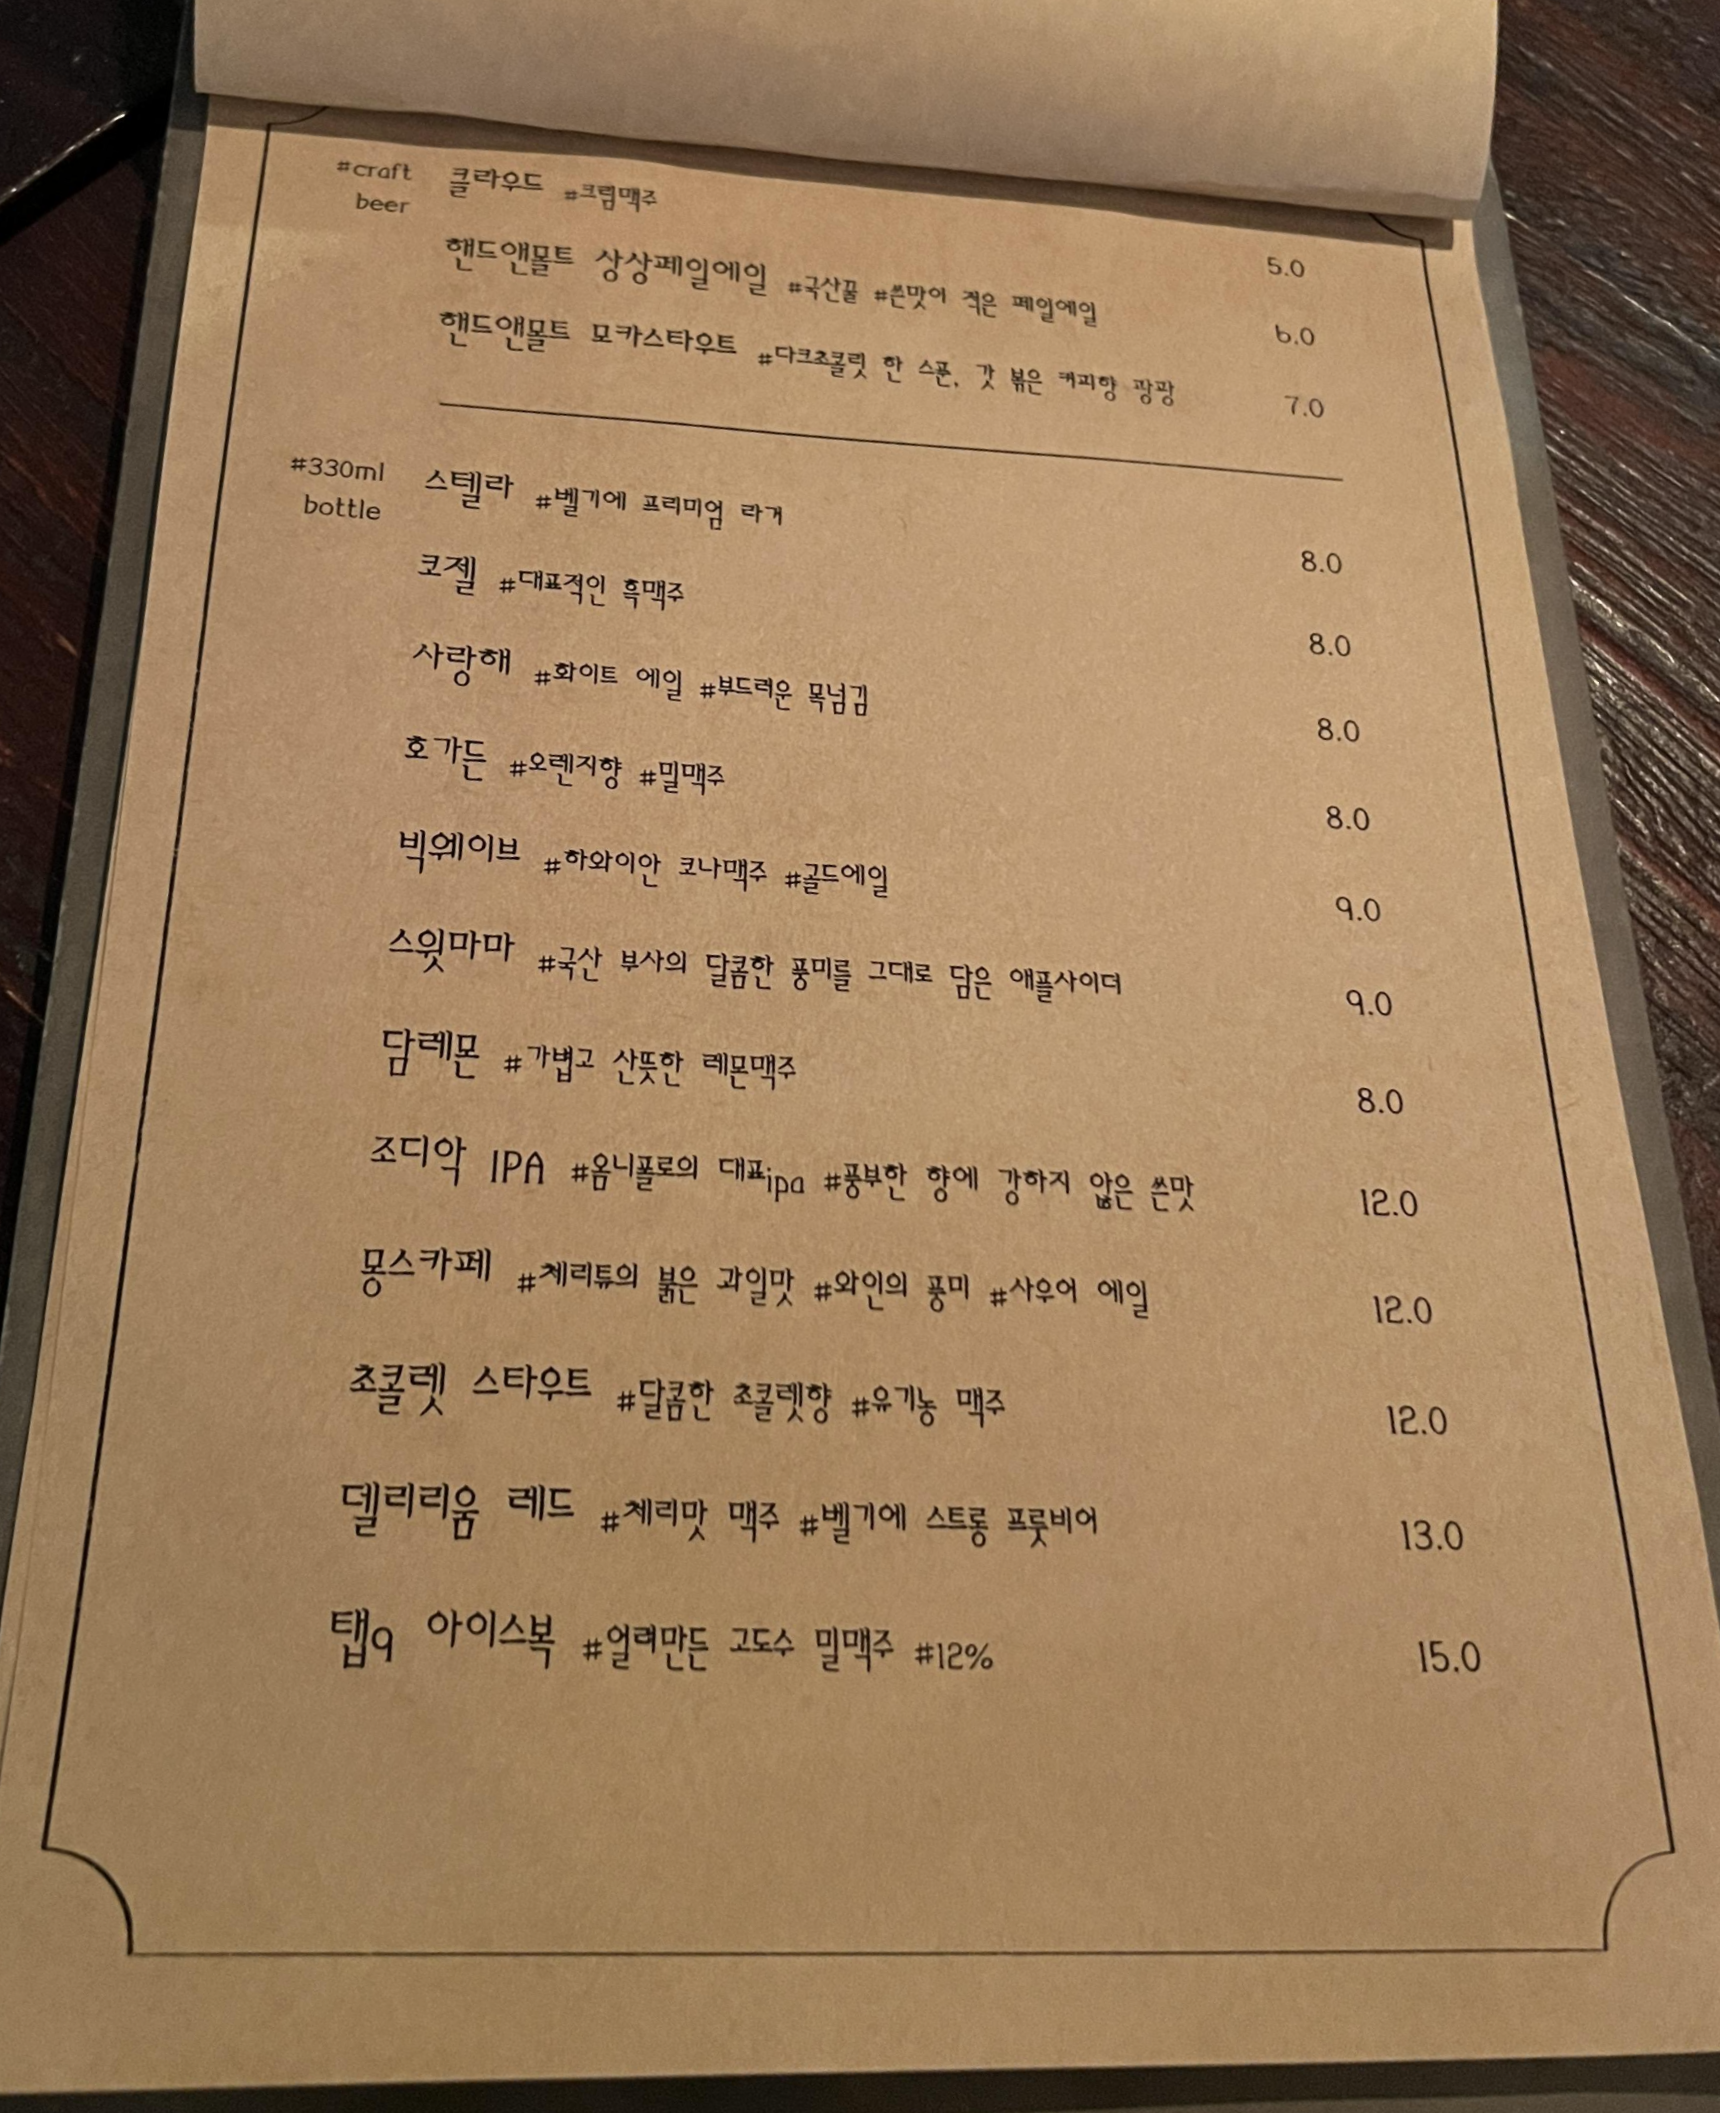 #craft beer 클라우드 #크림맥주 5.0
핸드앤몰트 상상페일에일 #국산꿀 #쓴맛이 적은 페일에일 6.0
핸드앤몰트 모카스타우트 #다크초콜릿 한 스푼, 갓 볶은 커피향 팡팡 7.0
#330ml bottle 스텔라 #벨기에 프리미엄 라거 8.0
코젤 #대표적인 흑맥주 8.0
사랑해 #화이트 에일 #부드러운 목넘김 8.0
호가든 #오렌지향 #밀맥주 8.0
빅웨이브 #하와이안 코나맥주 #골드에일 9.0
스윗마마 #국산 부사의 달콤한 풍미를 그대로 담은 애플사이더 9.0
담레몬 #가볍고 산뜻한 레몬맥주 8.0
조디악 IPA #옴니폴로의 대표ipa #풍부한 향에 강하지 않은 쓴맛 12.0
몽스카페 #체리튜의 붉은 과일맛 #와인의 풍미 #사우어 에일 12.0
초콜렛 스타우트 #달콤한 초콜렛향 #유기농 맥주 12.0
델리리움 레드 #체리맛 맥주 #벨기에 스트롱 프룻비어 13.0
탭9 아이스복 #얼려만든 고도수 밀맥주 #12% 15.0